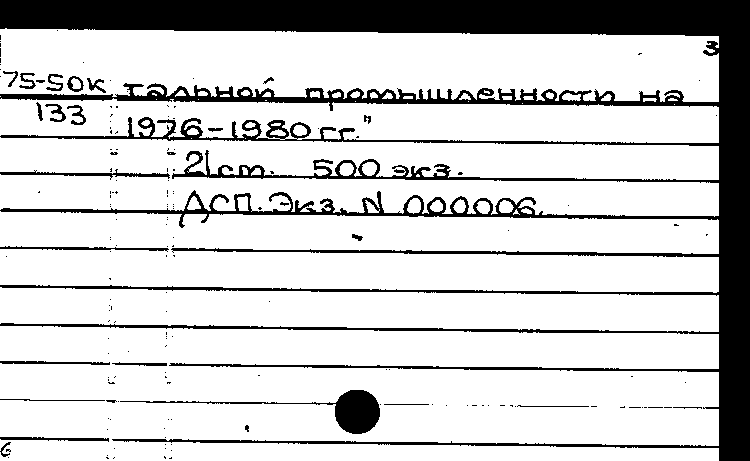 3
75-50к тальной промышленности на
133 1976-1980 гг."
21 ст. 500 экз.
ДСП. Экз. N 000006.
6